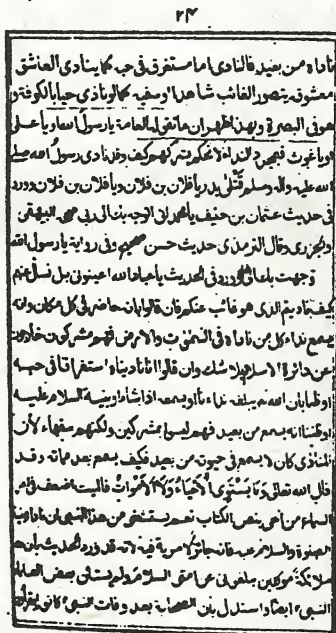 ۲۴
ناداه من بعيد فالنادى اما مستغرق فى حبه كما ينادى العاشق
معشوقه يتصور الغائب شاهدا او سفيه كما لو نادى حيا بالكوفة و
هو فى البصرة وبهذا ظهر ان ما تقوله العامة يا رسول الله او يا على
او يا غوث فبمجرد النداء لا نحكم بشركهم كيف وقد نادى رسول الله صلى
الله عليه واله وسلم قتلى بدر يا فلان بن فلان ويا فلان بن فلان وورد
فى حديث عثمان بن حنيف يا محمد انى اتوجه بك الى ربى صححه البيهقى
والجزرى وقال الترمذى حديث حسن صحيح وفى رواية يا رسول الله
توجهت بك وورد فى الحديث يا عباد الله اعينونى بل نسأل عنهم
كيف ناديتم الذى هو غائب عنكم فان قالوا بانه حاضر فى كل مكان وانه
يسمع نداء كل من ناداه فى السموات والارض فهم مشركون خارجون
عن دائرة الاسلام بلا شك وان قالوا انا ناديناه استغراقا فى حبه
او ظنا بان الله يبلغه نداءنا او يسمعه اذا شاء او بنية السلام عليه
او ظنا انه يسمع من بعيد فهم ليسوا بمشركين ولكنهم سفهاء لأن
المنادى كان لا يسمع فى حيوته من بعيد فكيف يسمع بعد مماته وقد
قال الله تعالى وما يستوى الأحياء ولا الأموات فالميت اضعف فى امر
السماع من الحى بنص الكتاب نعم يستثنى من هذا النبى ان ناداه بنية
الصلوة والسلام عليه فانه جائز لا مرية فيه لانه قد ورد الحديث بان
ملائكة موكلين يبلغونى عن امتى السلام ولم يستثنى بعض العلماء
النبى ايضا واستدل بان الصحابة بعد وفات النبى كانو يقولون